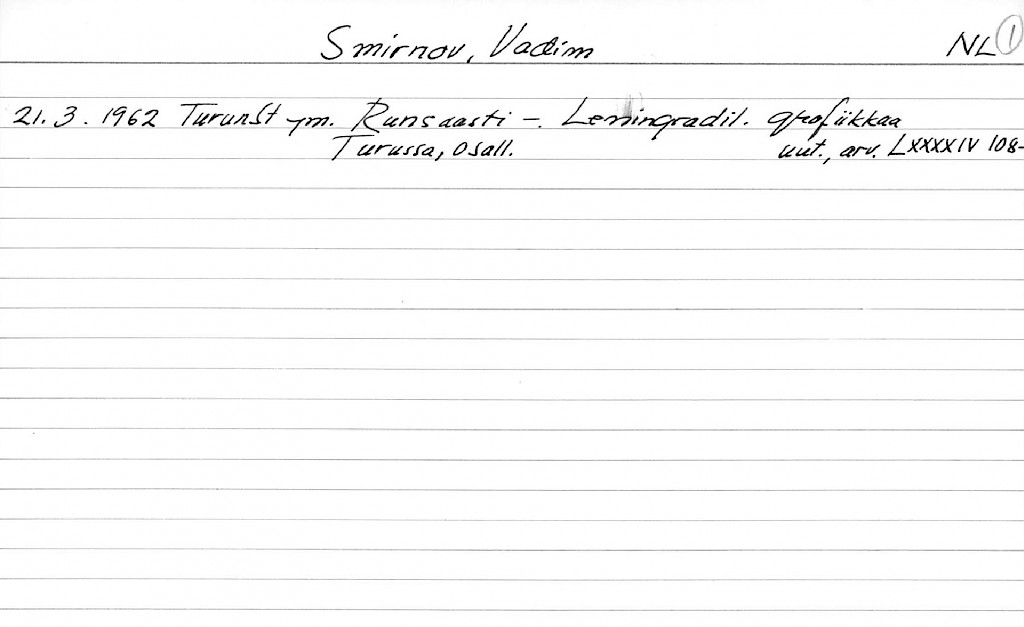 Smirnov, Vadim NL 1
21.3.1962 TurunSt ym. Runsaasti -. Leningradil. grafiikkaa
Turussa, osall. uut., arv. LXXXXIV 108-